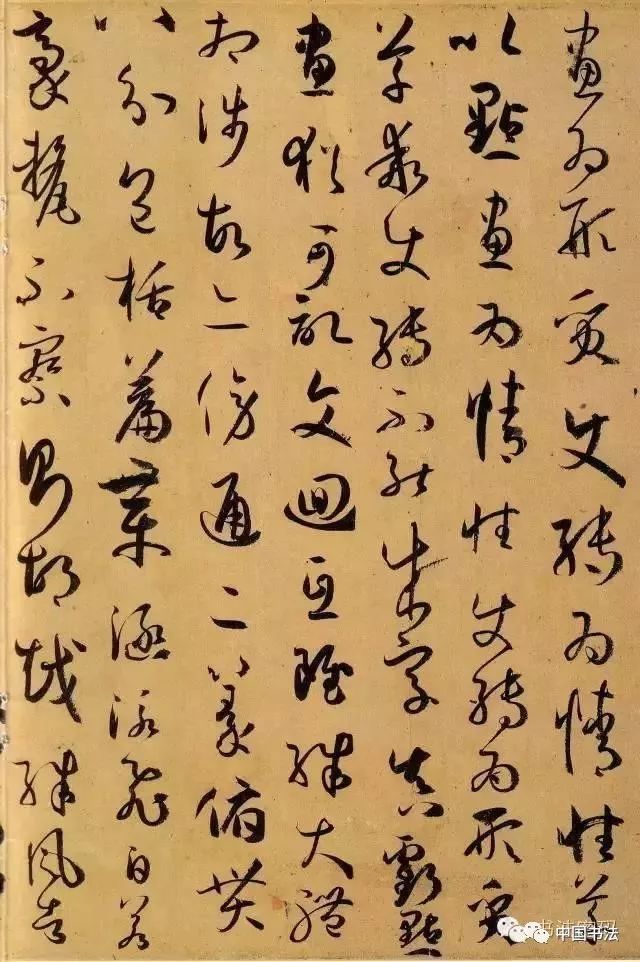 畫為形質使轉為情性草
以點畫為情性使轉為形質
草乖使轉不能成字真虧點
畫猶可記文迴互雖殊大體
相涉故亦傍通二篆俯貫
八分包括篇章涵泳飛白若
豪氂不察則胡越殊風者
书法密码
中国书法